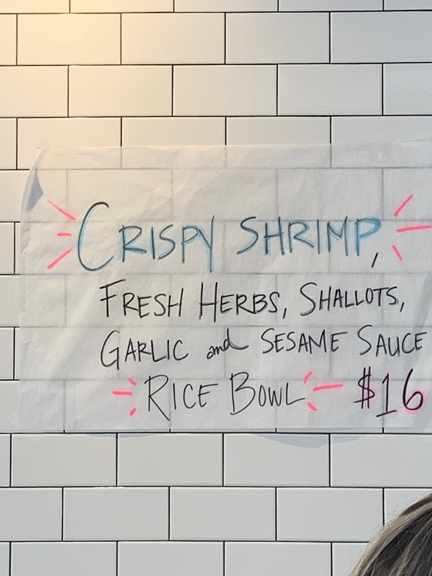 CRISPY SHRIMP,
FRESH HERBS, SHALLOTS,
GARLIC and SESAME SAUCE
RICE BOWL $16